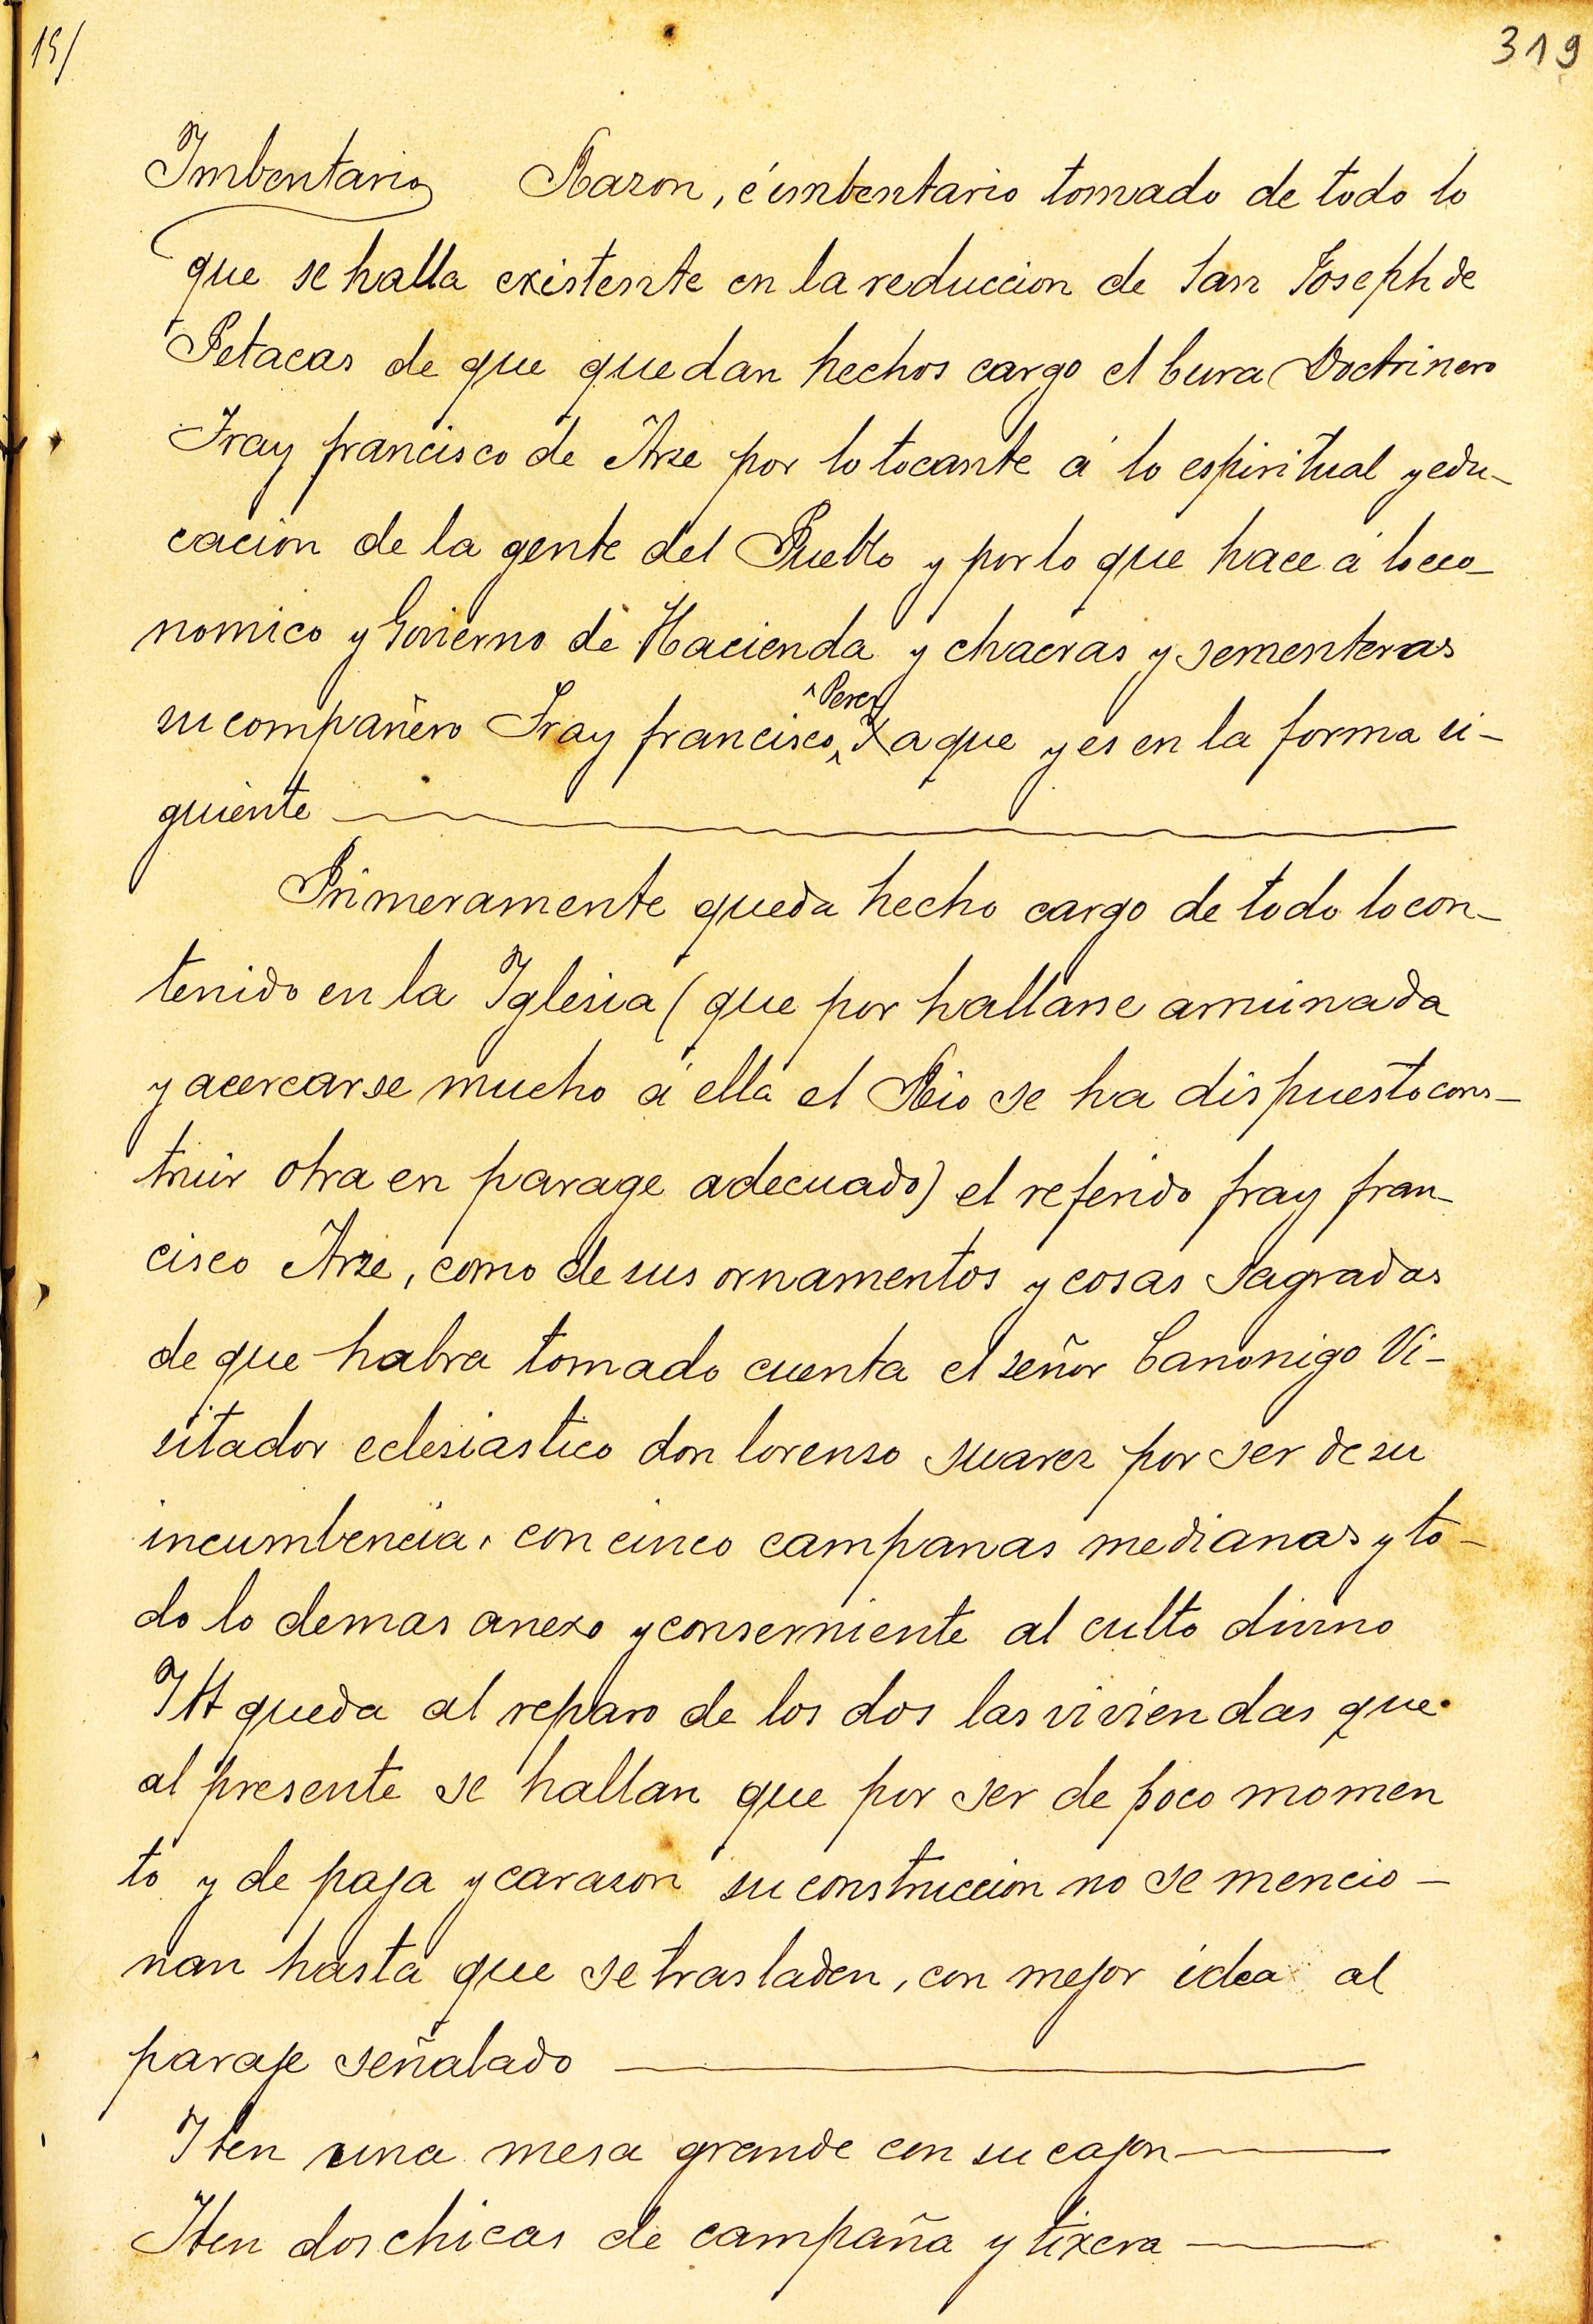 15/
319
Imbentario Razon, é imbentario tomado de todo lo
que se halla existente en la reduccion de San Joseph de
Petacas de que quedan hechos cargo el Cura Doctrinero
Fray francisco de Arze por lo tocante á lo espiritual y edu-
cacion de la gente del Pueblo y por lo que hace á loeco-
nomico y Govierno de Hacienda y chacras y sementeras
su compañero Fray francisco ^Perez Xaque y es en la forma si-
guiente
Primeramente queda hecho cargo de todo lo con-
tenido en la Iglesia (que por hallarse arruinada
y acercarse mucho á ella el Rio se ha dispuesto cons-
truir otra en parage adecuado) el referido fray fran-
cisco Arze, como de sus ornamentos y cosas sagradas
de que habra tomado cuenta el señor Canonigo Vi-
sitador eclesiastico don lorenso suarez por ser de su
incumbencia, con cinco campanas medianas y to-
do lo demas anexo y conserniente al culto divino
Itt queda al reparo de los dos las viviendas que
al presente se hallan que por ser de poco momen
to y de paja y carason su construccion no se mencio-
nan hasta que se trasladen, con mejor idea al
paraje señalado
Iten una mesa grande con su cajon
Iten dos chicas de campaña y tixera